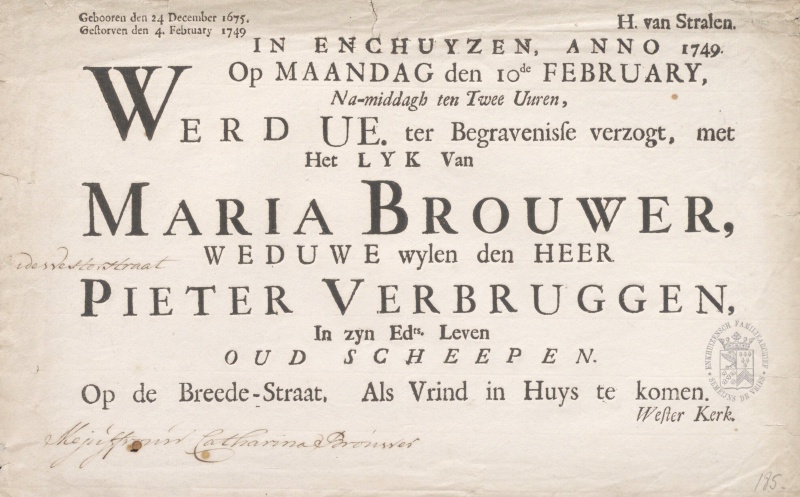 Gebooren den 24 December 1675.
Gestorven den 4. February 1749
H. van Stralen.
IN ENCHUYZEN, ANNO 1749.
Op MAANDAG den 10de FEBRUARY,
Na-middagh ten Twee Uuren,
WERD UE. ter Begravenisse verzogt, met
Het LYK Van
MARIA BROUWER,
WEDUWE wylen den HEER
de Westerstraat
PIETER VERBRUGGEN,
In zyn Edrs. Leven
OUD SCHEEPEN.
Op de Breede-Straat, Als Vrind in Huys te komen.
Wester Kerk.
Mejuffrouw Catharina Brouwer
ENKHUIZENSCH FAMILIEARCHIEF
185.